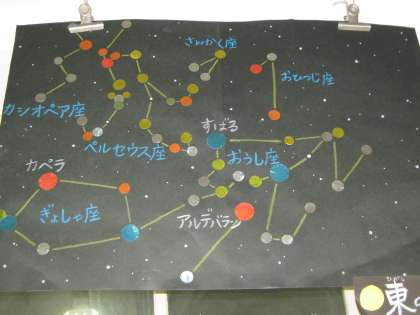 さんかく座
おひつじ座
カシオペア座
すばる
ペルセウス座
おうし座
カペラ
アルデバラン
ぎょしゃ座
ひがし
東の